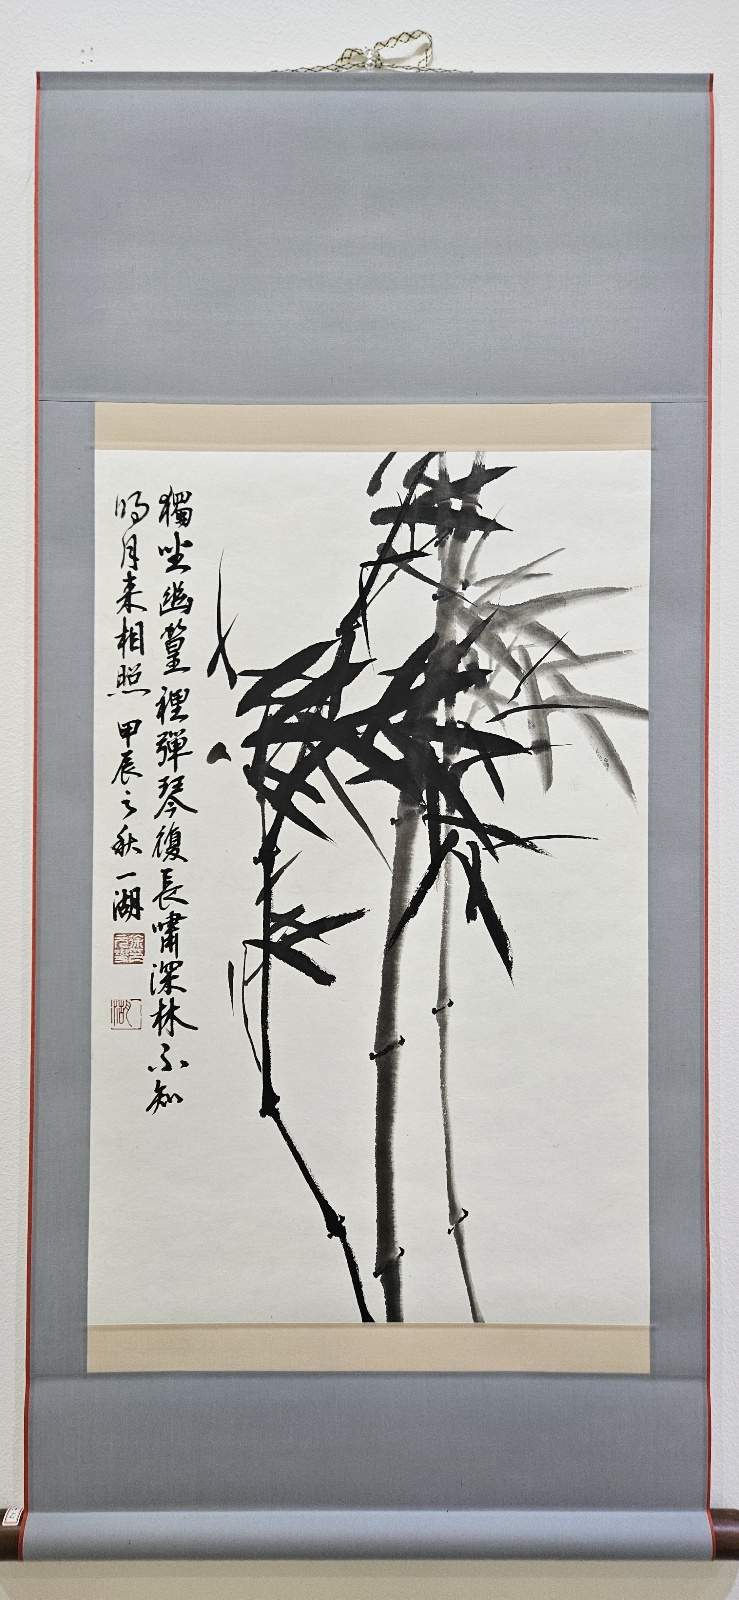 獨坐幽篁裡彈琴復長嘯深林不知
明月来相照 甲辰之秋 一湖